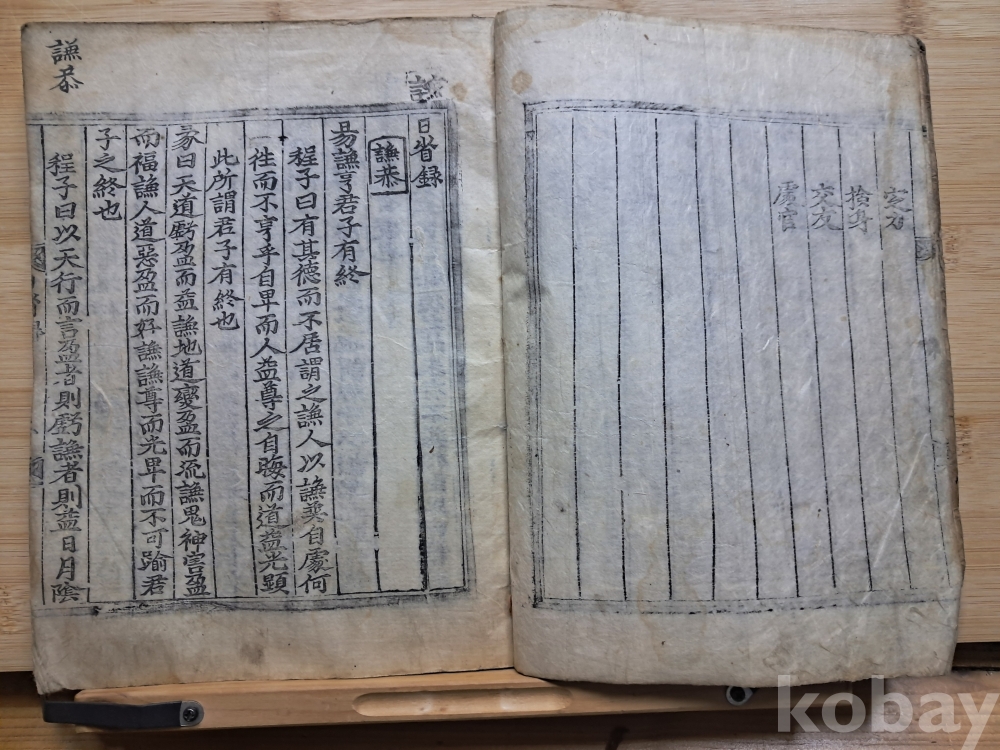 定居
捨身
交友
處官
日省录
謙恭
易謙亨君子有終
程子曰有其德而不居謂之謙人以謙巽自處何
往而不亨乎自卑而人益尊之自晦而道益光顯
此所謂君子有終也
彖曰天道虧盈而益謙地道變盈而流謙鬼神害盈
而福謙人道惡盈而好謙謙尊而光卑而不可踰君
子之終也
程子曰以天行而言盈者則虧謙者則益日月陰
謙恭
kobay